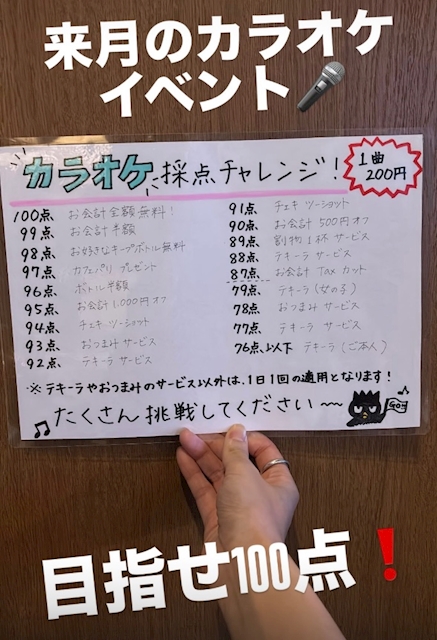 来月のカラオケ
イベント
カラオケ採点チャレンジ!
1曲
200円
100点、お会計全額無料!
99点、お会計半額
98点、お好きなキープボトル無料
97点、カフェパリ プレゼント
96点、ボトル半額
95点、お会計1,000円オフ
94点、チェキ ツーショット
93点、おつまみ サービス
92点、テキーラ サービス
91点、チェキ ツーショット
90点、お会計 500円オフ
89点、割物1杯 サービス
88点、テキーラ サービス
87点、お会計 Tax カット
79点、テキーラ(女の子)
78点、おつまみ サービス
77点、テキーラ サービス
76点以下 テキーラ(ご本人)
※テキーラやおつまみのサービス以外は、1日1回の適用となります!
たくさん挑戦してください〜〜
GO!!
目指せ100点❗